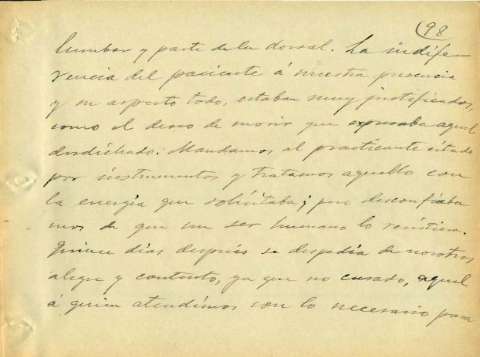 98
lumbar y parte de la dorsal. La indife
rencia del paciente á nuestra presencia
y su aspecto todo, estaban muy justificados,
como el deseo de morir que expresaba aquel
desdichado. Mandamos al practicante citado
por instrumentos y tratamos aquello con
la energía que solicitaba; pero desconfiába
mos de que un ser humano lo resistiera.
Quince días después se despedía de nosotros
alegre y contento, ya que no curado, aquel
á quien atendimos con lo necesario para